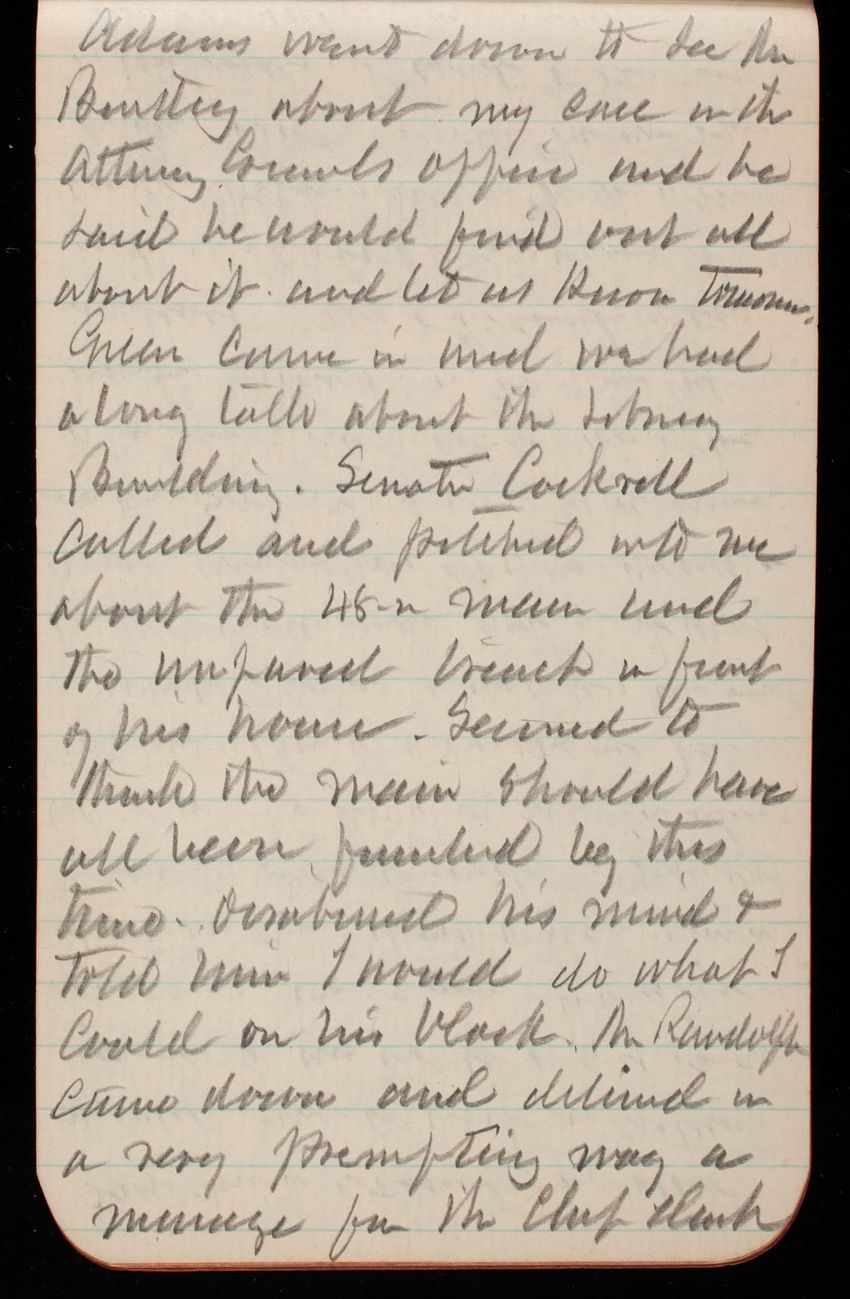 Adams went down to see Mr
Bentley about my case in the
Attorney Generals office and he
said he would find out all
about it. and let us know tomorrow.
Green came in and we had
a long talk about the Library
Building. Senator Cockrell
called and pitched into me
about the 48-in main and
the unpaved trench in front
of his house. Seemed to
think the main should have
all been finished by this
time. Disabused his mind &
told him I would do what I
could on his block. Mr Randolph
came down and delivered in
a very peremptory way a
message from the Chief Clerk